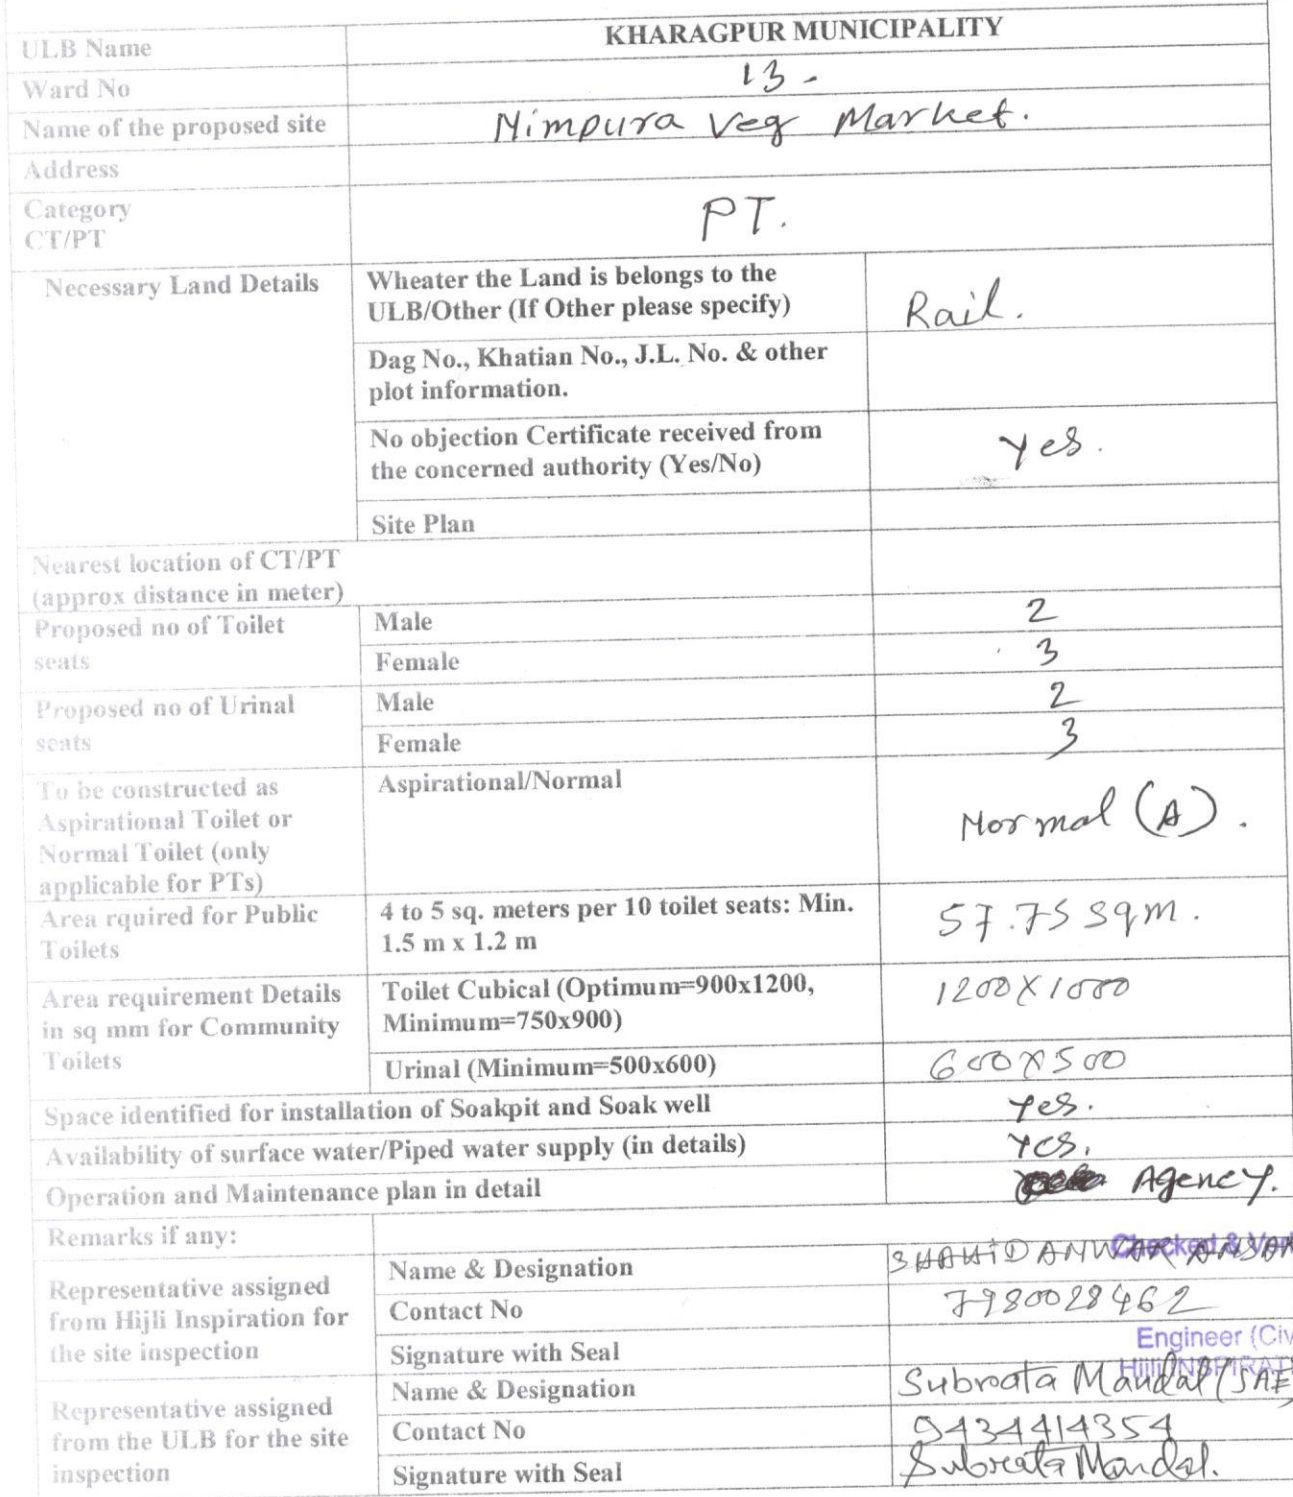 ULB Name KHARAGPUR MUNICIPALITY
Ward No 13 -
Name of the proposed site Nimpura Veg Market.
Address
Category
CT/PT PT.
Necessary Land Details Wheater the Land is belongs to the
ULB/Other (If Other please specify) Rail.
Dag No., Khatian No., J.L. No. & other
plot information.
No objection Certificate received from
the concerned authority (Yes/No) Yes.
Site Plan
Nearest location of CT/PT
(approx distance in meter)
Proposed no of Toilet
seats
Male 2
Female 3
Proposed no of Urinal
seats
Male 2
Female 3
To be constructed as
Aspirational Toilet or
Normal Toilet (only
applicable for PTs)
Aspirational/Normal
Normal (A).
Area rquired for Public
Toilets
4 to 5 sq. meters per 10 toilet seats: Min.
1.5 m x 1.2 m
57.75 Sqm.
Area requirement Details
in sq mm for Community
Toilets
Toilet Cubical (Optimum=900x1200,
Minimum=750x900)
1200X1000
Urinal (Minimum=500x600) 600X500
Space identified for installation of Soakpit and Soak well Yes.
Availability of surface water/Piped water supply (in details) Yes.
Operation and Maintenance plan in detail Agency.
Remarks if any:
Representative assigned
from Hijli Inspiration for
the site inspection
Name & Designation SHAHiD ANWAR ANSAR
Checked &
Contact No 7980028462
Engineer (Civ
Signature with Seal
Hijli INSPIRAT
Representative assigned
from the ULB for the site
inspection
Name & Designation Subrata Mandal (SAE
Contact No 9434414354
Signature with Seal Subrata Mandal.